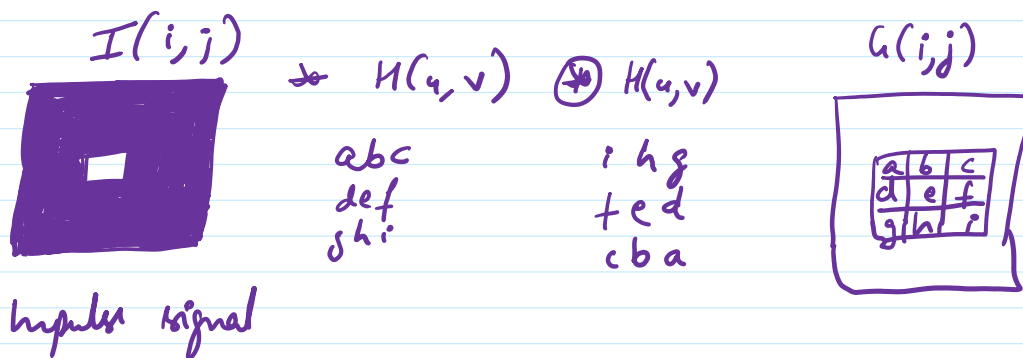 I(i,j) * H(u,v) ⊛ H(u,v) G(i,j)
a b c
d e f
g h i
i h g
f e d
c b a
a b c
d e f
g h i
Impulse signal